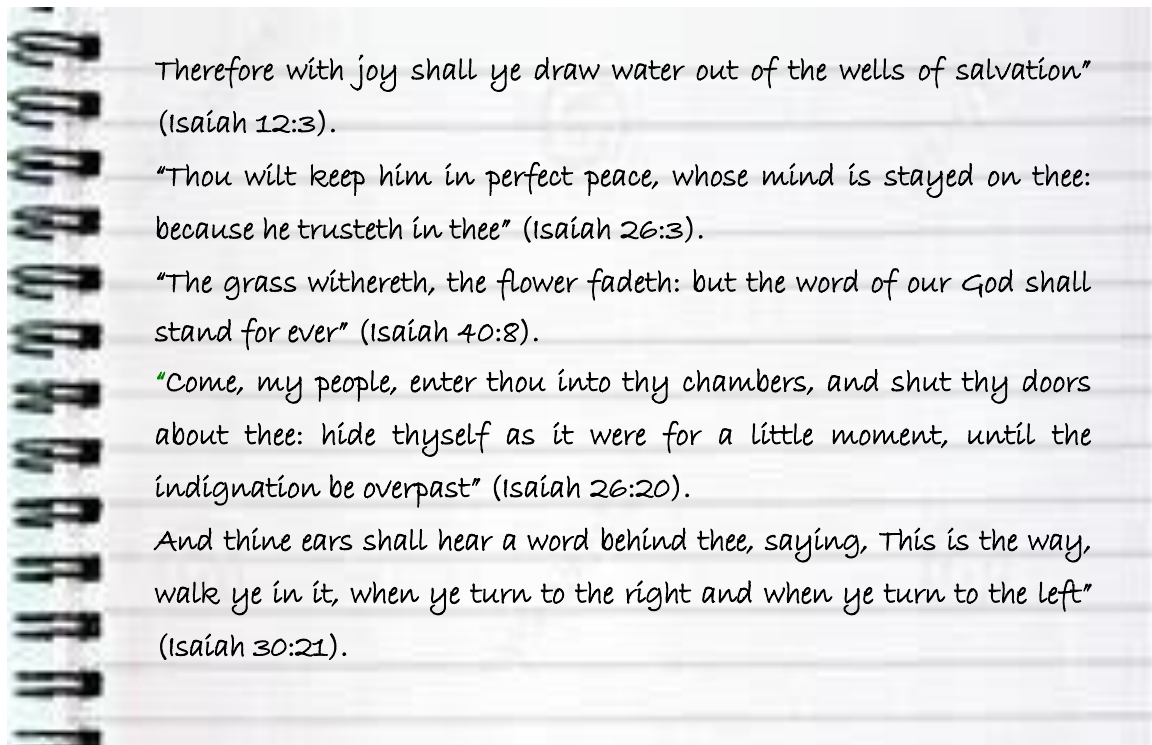 Therefore with joy shall ye draw water out of the wells of salvation”
(Isaiah 12:3).
“Thou wilt keep him in perfect peace, whose mind is stayed on thee:
because he trusteth in thee” (Isaiah 26:3).
“The grass withereth, the flower fadeth: but the word of our God shall
stand for ever” (Isaiah 40:8).
“Come, my people, enter thou into thy chambers, and shut thy doors
about thee: hide thyself as it were for a little moment, until the
indignation be overpast” (Isaiah 26:20).
And thine ears shall hear a word behind thee, saying, This is the way,
walk ye in it, when ye turn to the right and when ye turn to the left”
(Isaiah 30:21).